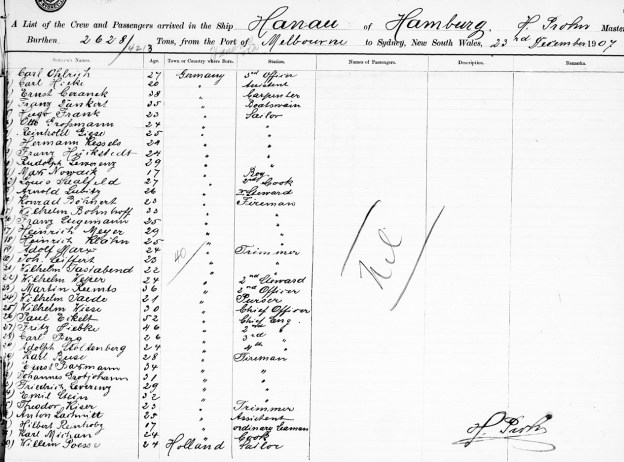 A List of the Crew and Passengers arrived in the Ship Hanau of Hamburg, H. Prohn Master
Burthen 2628/4213 Tons, from the Port of Melbourne to Sydney, New South Wales, 23rd December 1907
Seaman's Names. Age. Town or Country where Born. Station. Names of Passengers. Description. Remarks.
Carl 27 Germany 3rd Officer
Carl 20 "
Ernst Ceranek 38 " Carpenter
Franz Dankert 35 " Boatswain
Hugo Frank 23 " Sailor
Otto Großmann 24 "
Reinhold Giese 25 "
Hermann Kessels 29 "
Franz 24 "
Rudolph 29 "
Max Nowack 17 " Boy
Louis Saalfeld 27 " 2nd Cook
Arnold Lubitz 26 " Steward
Konrad Böhnert 23 " Fireman
Wilhelm Bohnhoff 33 "
Franz 25 "
Heinrich Meyer 29 "
18) Heinrich Klahn 25 "
Adolf Marx 24 " Trimmer
Joh. Seiffert 23 "
Wilhelm Fastabend 22 "
22) Wilhelm 24 " 2nd Steward
23) Martin 36 " 2nd Officer
24) Wilhelm 21 " Purser
25) Wilhelm Wiese 30 " Chief Officer
26) Paul Eckelt 52 " Chief Eng.
27) Fritz Liebke 46 " 2nd "
28) Carl Berg 26 " 3rd "
Adolph Stoltenberg 24 " 4th "
Karl 28 " Fireman
Ernst 34 "
Johannes Grotjohann 31 "
Friedrich 29 "
Emil Stein 32 "
Theodor Kiser 23 " Trimmer
Anton 25 " Assistent
Hilbert 17 " ordinary Seaman
Karl 24 " Cook
Willem 24 Holland Sailor
40
Nil
H. Prohn